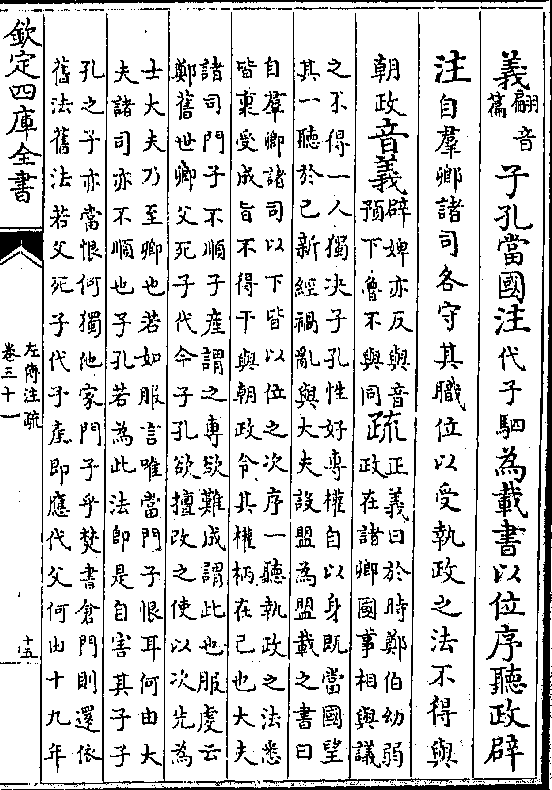 義翩音
篇
子孔當國注代子駟為載書以位序聽政辟
注自羣卿諸司各守其職位以受執政之法不得與
朝政音義辟婢亦反與音
預下魯不與同
疏正義曰於時鄭伯幼弱
政在諸卿國事相與議
之不得一人獨決子孔性好專權自以身既當國望
其一聽於己新經禍亂與大夫設盟為盟載之書曰
自羣卿諸司以下皆以位之次序一聽執政之法悉
皆稟受成旨不得干與朝政令其權柄在己也大夫
諸司門子不順子產謂之專欲難成謂此也服虔云
鄭舊世卿父死子代今子孔欲擅改之使以次先為
士大夫乃至卿也若如服言唯當門子恨耳何由大
夫諸司亦不順也子孔若為此法即是自害其子子
孔之子亦當恨何獨他家門子乎焚書倉門則還依
舊法舊法若父死子代子產即應代父何由十九年
欽定四庫全書
左傳注疏
卷三十一
十五